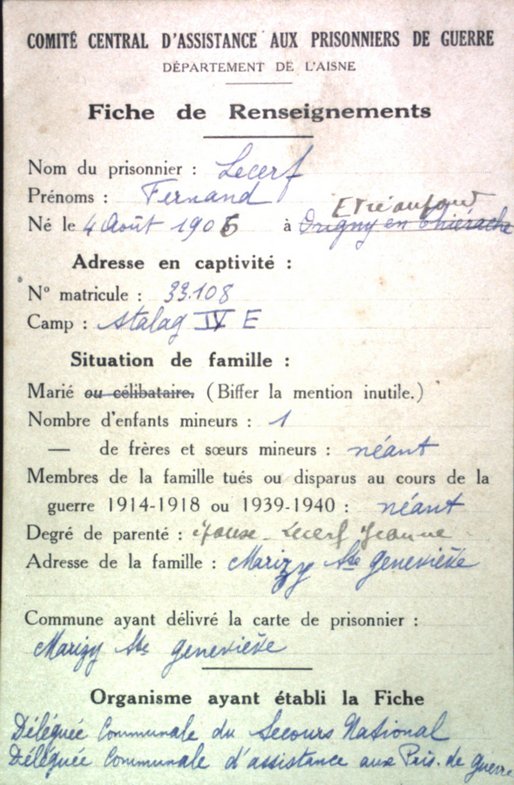 COMITÉ CENTRAL D'ASSISTANCE AUX PRISONNIERS DE GUERRE
DÉPARTEMENT DE L'AISNE
Fiche de Renseignements
Nom du prisonnier : Lecerf
Prénoms : Fernand
Etréaupont
Né le 4 Août 1906 à Origny en Thiérache
Adresse en captivité :
N° matricule : 33.108
Camp : Stalag IV E
Situation de famille :
Marié ou célibataire. (Biffer la mention inutile.)
Nombre d'enfants mineurs : 1
— de frères et sœurs mineurs : néant
Membres de la famille tués ou disparus au cours de la
guerre 1914-1918 ou 1939-1940 : néant
Degré de parenté : épouse - Lecerf Jeanne
Adresse de la famille : Marizy Ste Geneviève
Commune ayant délivré la carte de prisonnier :
Marizy Ste Geneviève
Organisme ayant établi la Fiche
Déléguée Communale du Secours National
Déléguée Communale d'assistance aux Pris. de guerre